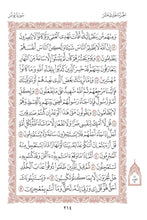 الجزء الحادي عشر
سورة يونس
ومنهم من ينظر إليك أفأنت تهدي العمي ولو كانوا لا يبصرون
٤٣ إن الله لا يظلم الناس شيئا ولكن الناس أنفسهم يظلمون
٤٤ ويوم يحشرهم كأن لم يلبثوا إلا ساعة من النهار يتعارفون
بينهم قد خسر الذين كذبوا بلقاء الله وما كانوا مهتدين
٤٥ وإما نرينك بعض الذي نعدهم أو نتوفينك فإلينا مرجعهم
ثم الله شهيد على ما يفعلون ٤٦ ولكل أمة رسول فإذا
جاء رسولهم قضي بينهم بالقسط وهم لا يظلمون ٤٧
ويقولون متى هذا الوعد إن كنتم صادقين ٤٨ قل لا أملك
لنفسي ضرا ولا نفعا إلا ما شاء الله لكل أمة أجل إذا جاء أجلهم
فلا يستأخرون ساعة ولا يستقدمون ٤٩ قل أرأيتم إن أتاكم
عذابه بياتا أو نهارا ماذا يستعجل منه المجرمون ٥٠ أثم
إذا ما وقع آمنتم به آلآن وقد كنتم به تستعجلون ٥١ ثم قيل
للذين ظلموا ذوقوا عذاب الخلد هل تجزون إلا بما كنتم
تكسبون ٥٢ ويستنبئونك أحق هو
قل إي وربي إنه لحق وما أنتم بمعجزين ٥٣
٢١٤